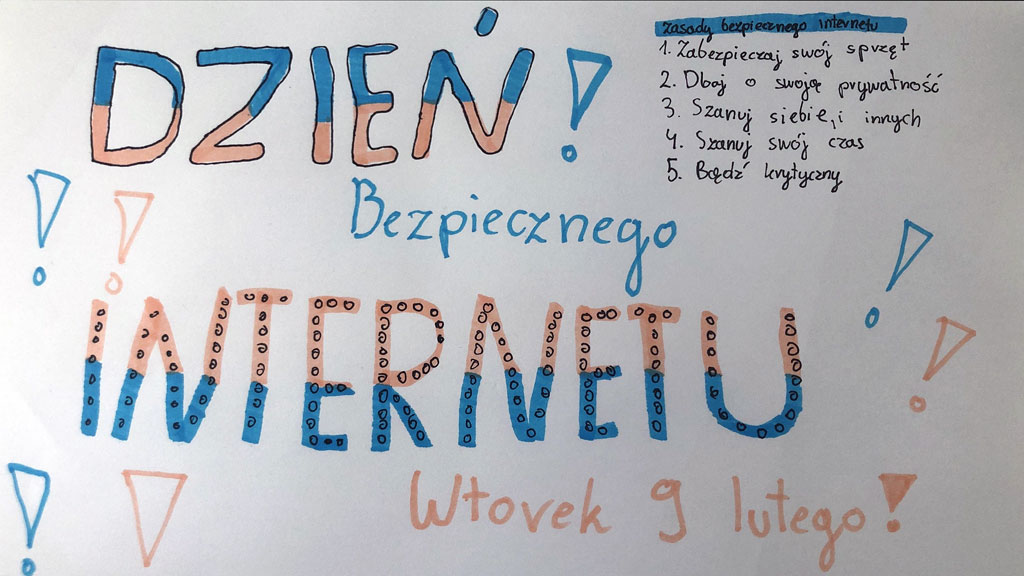 DZIEŃ!
Bezpiecznego
INTERNETU
Wtorek 9 lutego!
Zasady bezpiecznego internetu
1. Zabezpieczaj swój sprzęt
2. Dbaj o swoją prywatność
3. Szanuj siebie, i innych
4. Szanuj swój czas
5. Bądź krytyczny